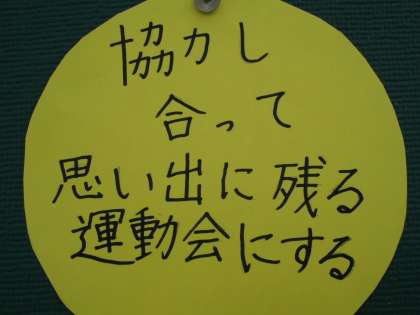 協力し
合って
思い出に残る
運動会にする